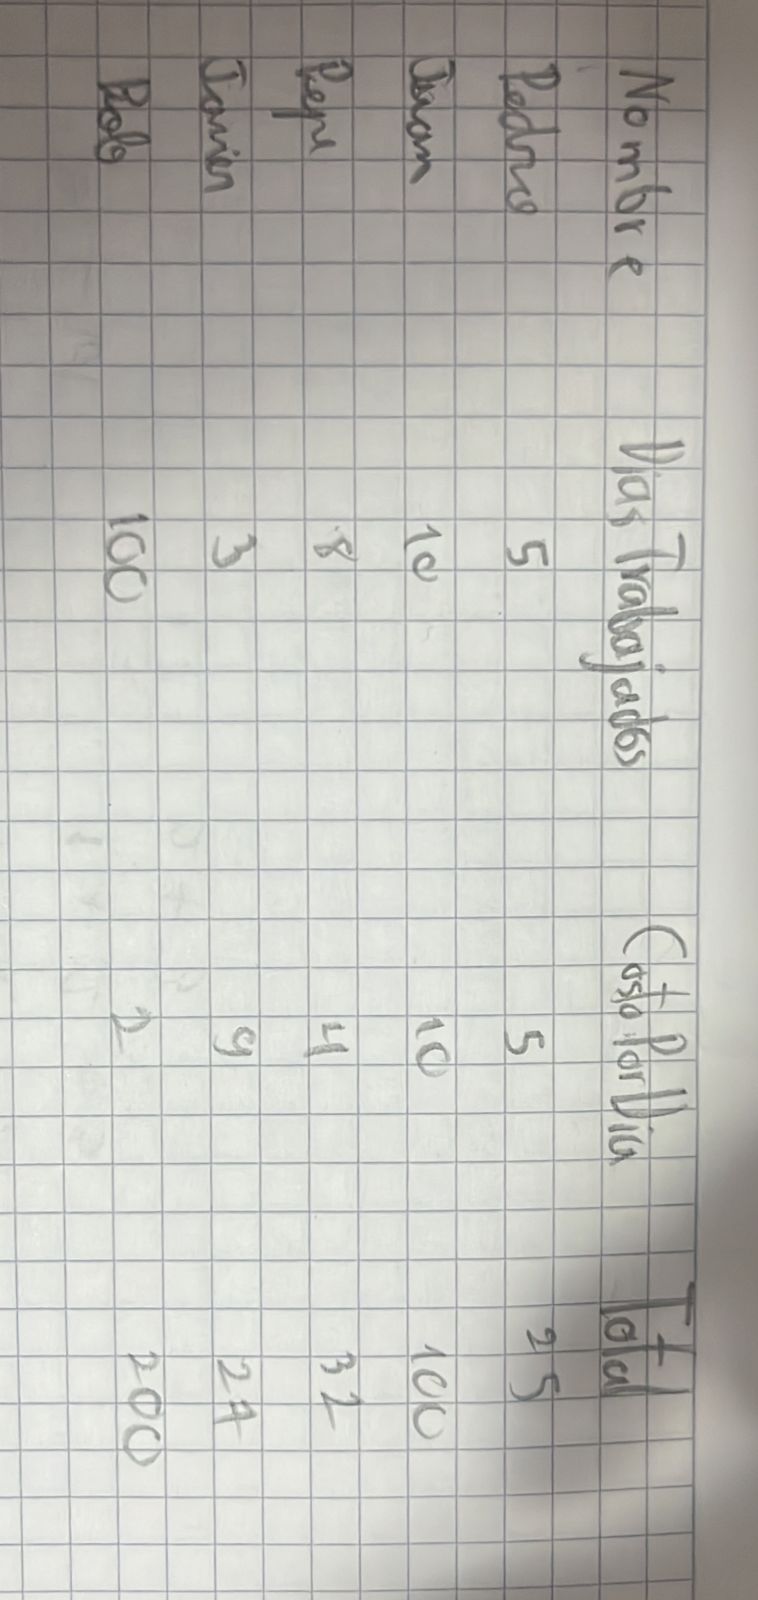 Nombre Dias Trabajados Costo Por Dia Total
Pedro 5 5 25
Juan 10 10 100
Pepe 8 4 32
Javier 3 9 27
Rolo 100 2 200